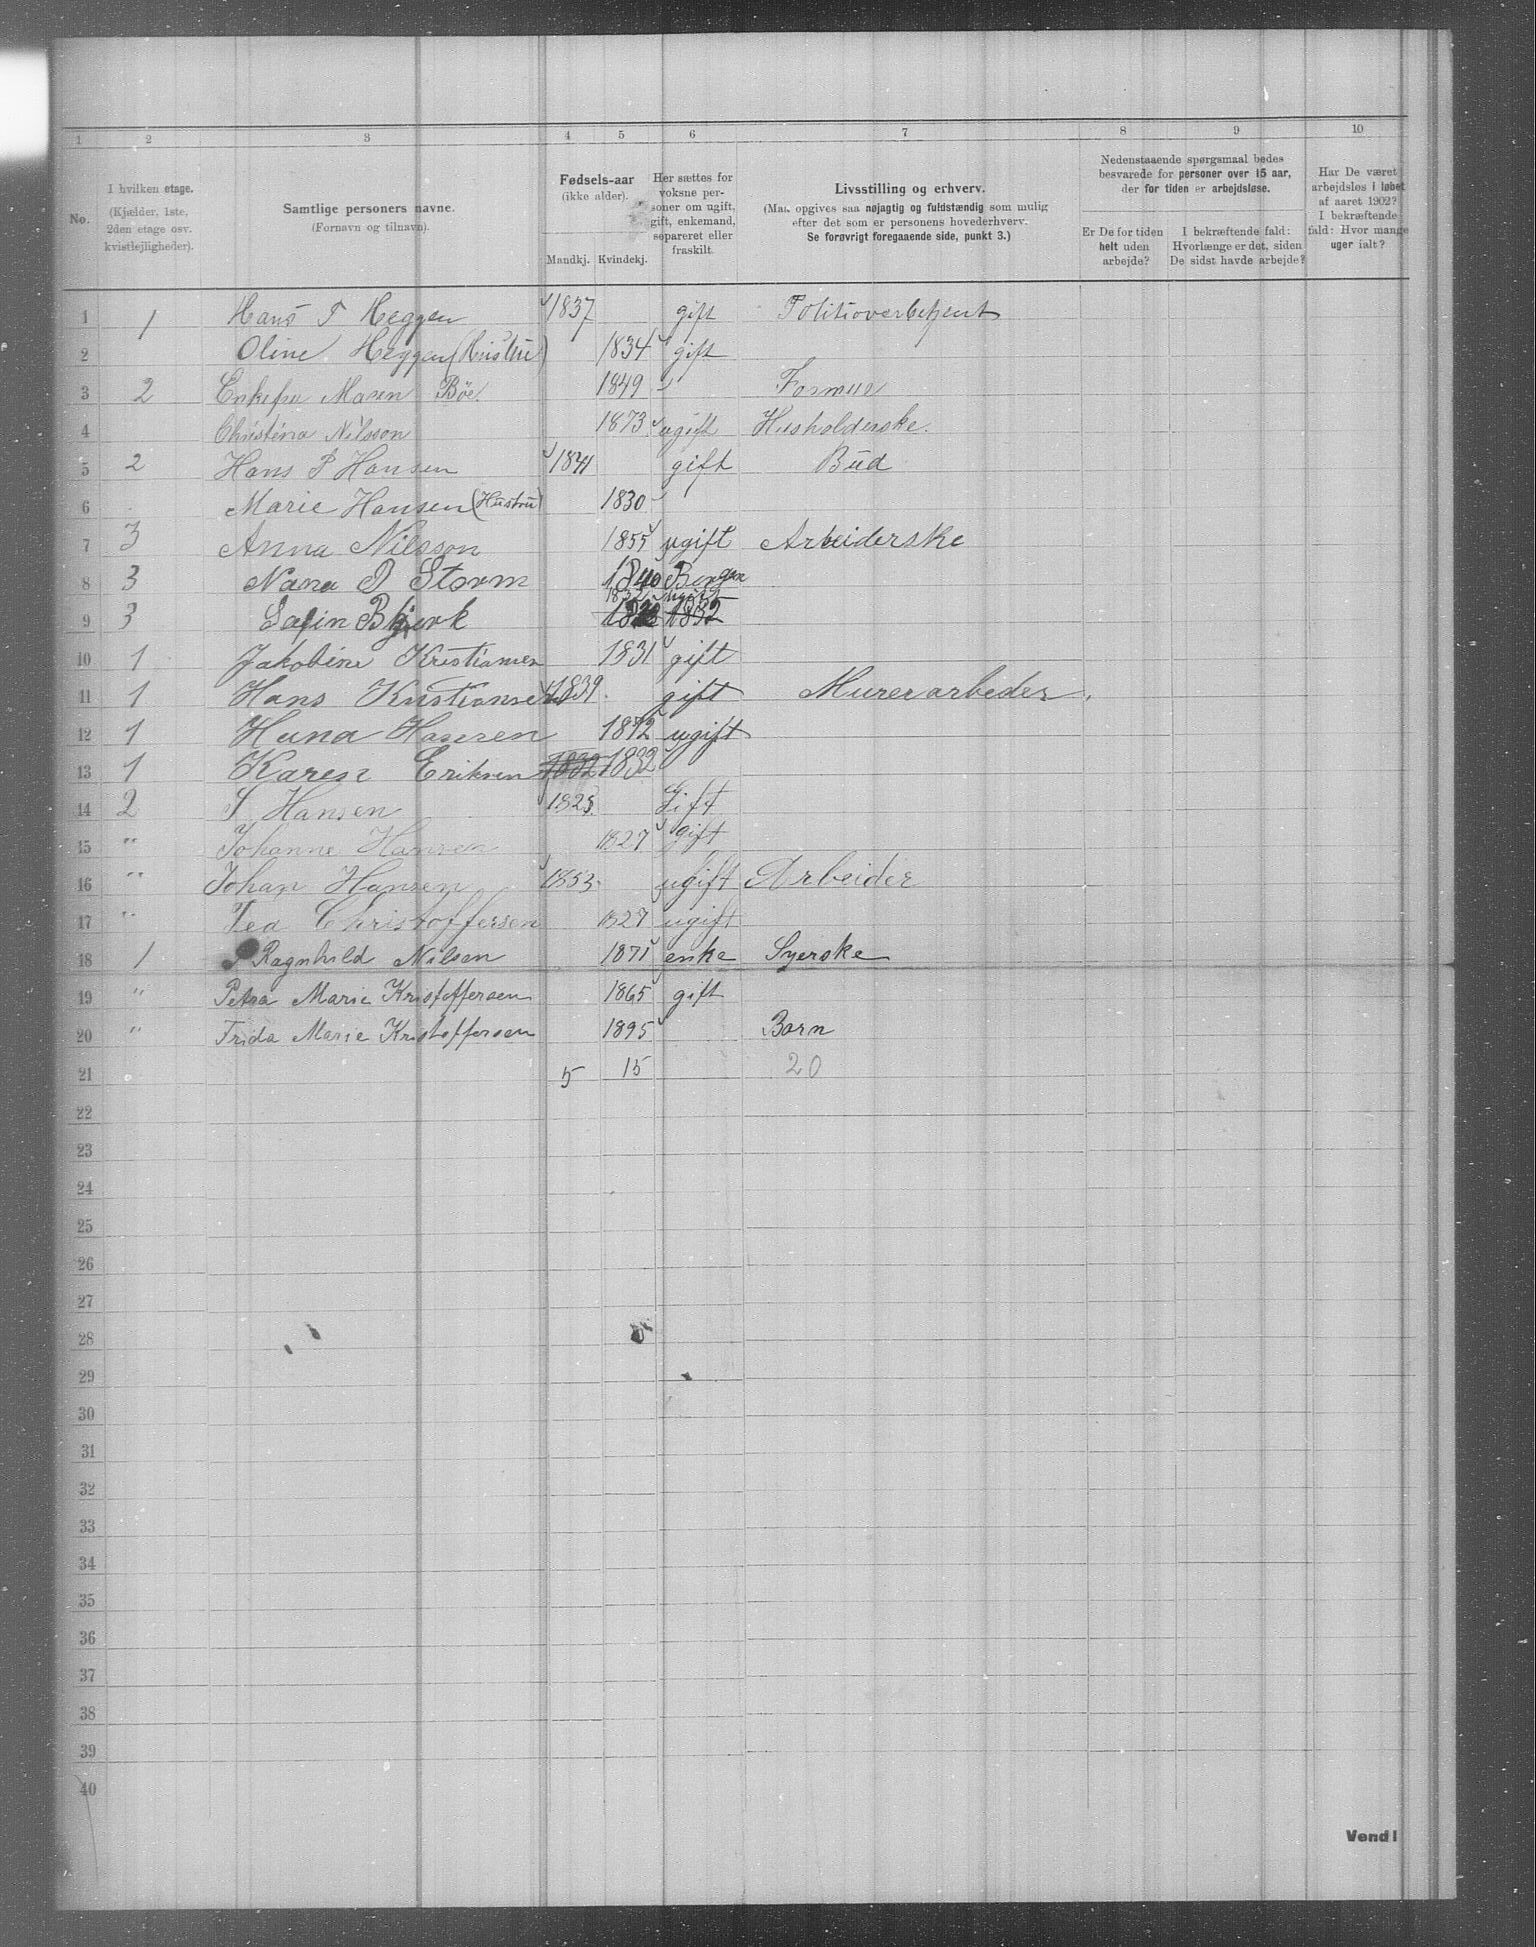 1 2 3 4 5 6 7 8 9 10
No.
I hvilken etage.
(Kjælder, 1ste,
2den etage osv.
kvistlejligheder).
Samtlige personers navne.
(Fornavn og tilnavn).
Fødsels-aar
(ikke alder).
Mandkj. Kvindekj.
Her sættes for
voksne per-
soner om ugift,
gift, enkemand,
separeret eller
fraskilt.
Livsstilling og erhverv.
(Maa opgives saa nøjagtig og fuldstændig som mulig
efter det som er personens hovederhverv.
Se forøvrigt foregaaende side, punkt 3.)
Nedenstaaende spørgsmaal bedes
besvarede for personer over 15 aar,
der for tiden er arbejdsløse.
Er De for tiden
helt uden
arbejde?
I bekræftende fald:
Hvorlænge er det, siden
De sidst havde arbejde?
Har De været
arbejdsløs i løbet
af aaret 1902?
I bekræftende
fald: Hvor mange
uger ialt?
1 1 Hans T Heggen 1837 gift
2 Oline Heggen (Hustru) 1834 gift
3 2 Maren Bøe. 1849 " Formue
4 Christina Nilsson 1873 ugift Husholderske.
5 2 Hans P Hansen 1841 gift Bud
6 Marie Hansen (Hustru) 1830 "
7 3 Anna Nilsson 1855 ugift Arbeiderske
8 3 Nana D Storm 1840 Bergen
9 3 1832 ugift 1832
10 1 Jakobine Kristiansen 1831 gift
11 1 Hans Kristiansen 1839 gift Murerarbeder.
12 1 1872 ugift
13 1 Karen Eriksen 1832 1832
14 2 S Hansen 1825 Gift
15 " Johanne Hansen 1827 gift
16 " Johan Hansen 1853 ugift Arbeider
17 " Tea Christoffersen 1827 ugift
18 1 Ragnhild Nilsen 1871 enke Syerske
19 " Petra Marie Kristoffersen 1865 gift
20 " Frida Marie Kristoffersen 1895 Barn
21 5 15 20
22
23
24
25
26
27
28
29
30
31
32
33
34
35
36
37
38
39
40
Vend!